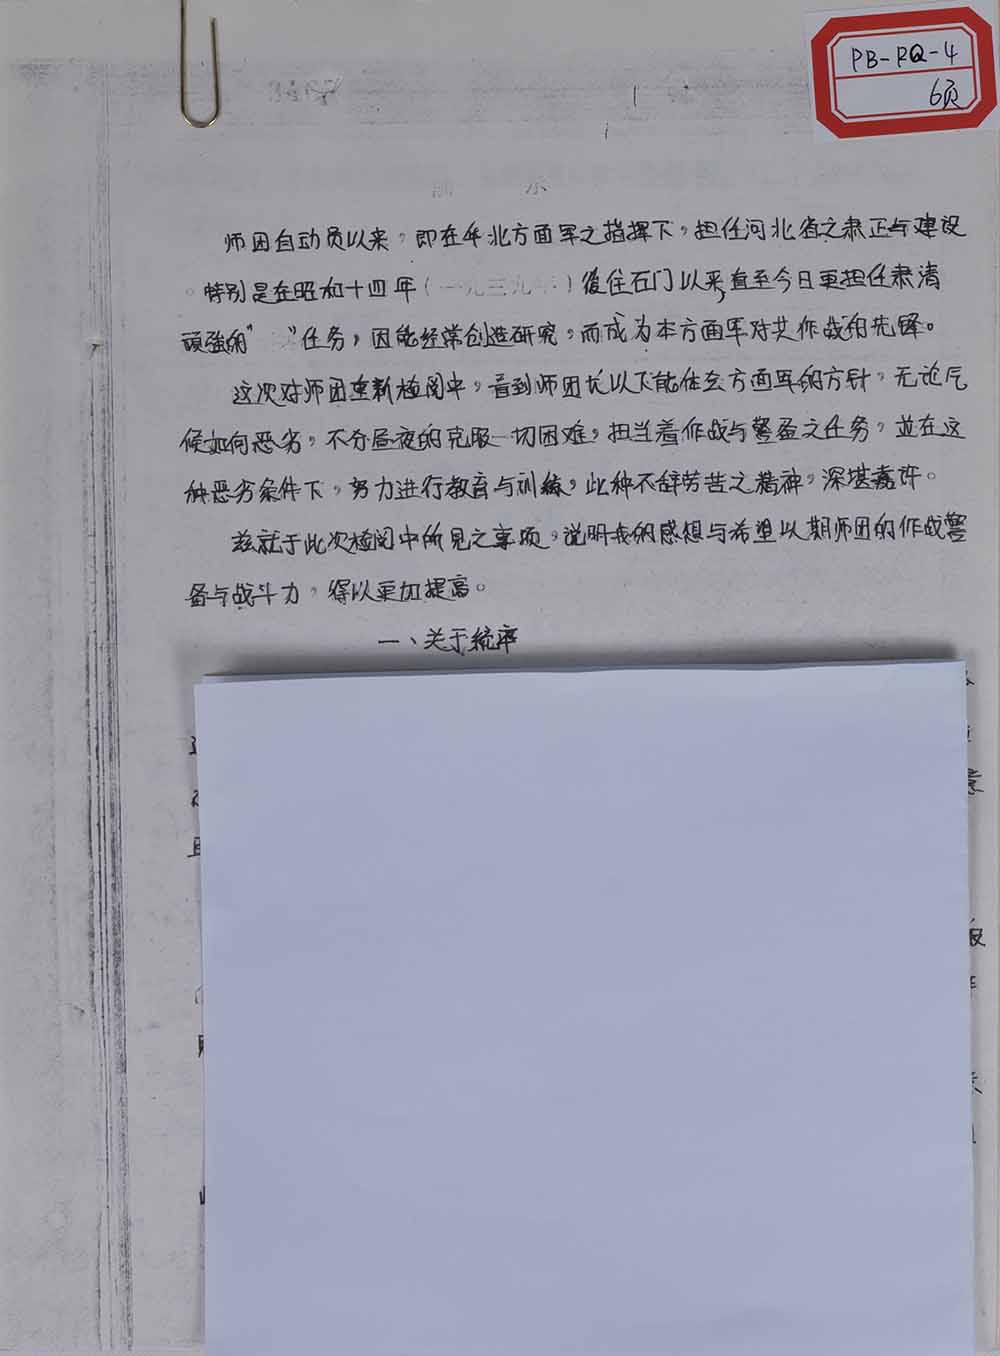 PB-RQ-4
6页
师团自动员以来，即在华北方面军之指挥下，担任河北省之肃正与建设
。特别是在昭和十四年（一九三九年）復住石门以来，直至今日更担任肃清
頑強的“ ”任务，因能经常创造研究，而成为本方面军对共作战的先锋。
这次对师团重新检阅中，看到师团长以下能体会方面军的方针，无论气
候如何恶劣，不分昼夜的克服一切困难，担当着作战与警备之任务，並在这
种恶劣条件下，努力进行教育与训练，此种不辞劳苦之精神，深堪嘉许。
兹就于此次检阅中所见之事项，说明我的感想与希望以期师团的作战警
备与战斗力，得以更加提高。
一、关于统率
且
意